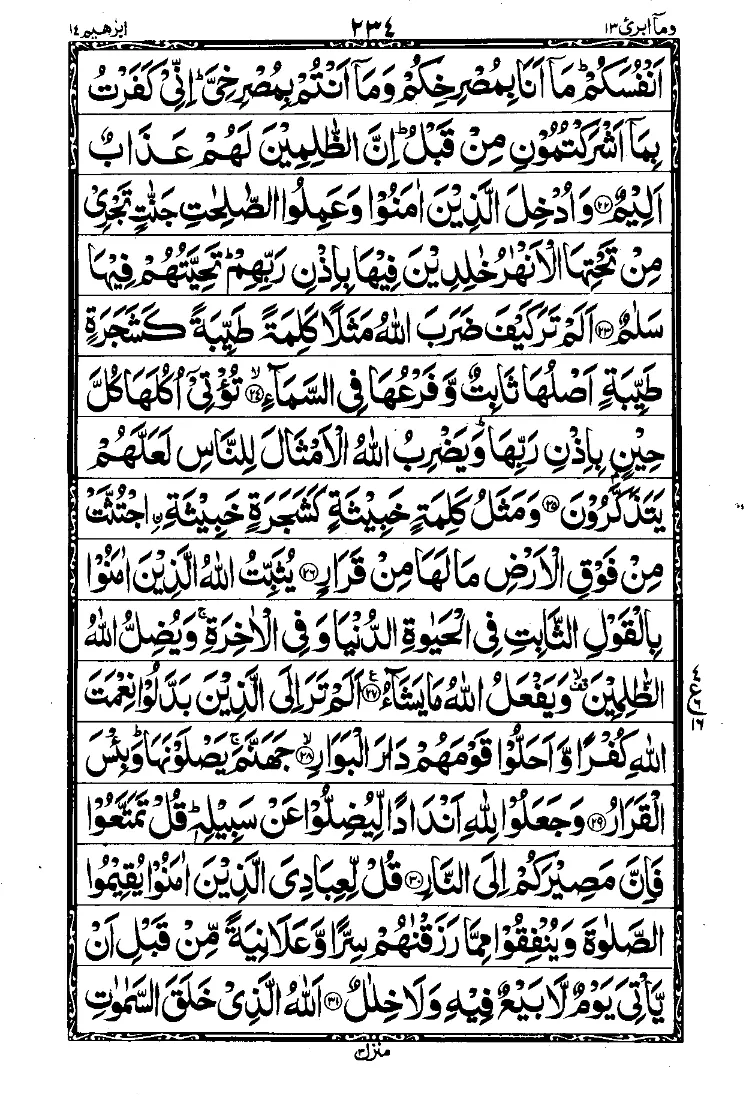 وماۤ ابرئ ١٣ ٢٣٤ ابرٰهيم ١٤
اَنْفُسَكُمْ ؕ مَاۤ اَنَا بِمُصْرِخِكُمْ وَمَاۤ اَنْتُمْ بِمُصْرِخِیَّ ؕ اِنِّیْ كَفَرْتُ
بِمَاۤ اَشْرَكْتُمُوْنِ مِنْ قَبْلُ ؕ اِنَّ الظّٰلِمِیْنَ لَهُمْ عَذَابٌ
اَلِیْمٌ ﴿٢٢﴾ وَاُدْخِلَ الَّذِیْنَ اٰمَنُوْا وَعَمِلُوا الصّٰلِحٰتِ جَنّٰتٍ تَجْرِیْ
مِنْ تَحْتِهَا الْاَنْهٰرُ خٰلِدِیْنَ فِیْهَا بِاِذْنِ رَبِّهِمْ ؕ تَحِیَّتُهُمْ فِیْهَا
سَلٰمٌ ﴿٢٣﴾ اَلَمْ تَرَ كَیْفَ ضَرَبَ اللّٰهُ مَثَلًا كَلِمَةً طَیِّبَةً كَشَجَرَةٍ
طَیِّبَةٍ اَصْلُهَا ثَابِتٌ وَّفَرْعُهَا فِی السَّمَآءِ ﴿٢٤﴾ۙ تُؤْتِیْۤ اُكُلَهَا كُلَّ
حِیْنٍۭ بِاِذْنِ رَبِّهَا ؕ وَیَضْرِبُ اللّٰهُ الْاَمْثَالَ لِلنَّاسِ لَعَلَّهُمْ
یَتَذَكَّرُوْنَ ﴿٢٥﴾ وَمَثَلُ كَلِمَةٍ خَبِیْثَةٍ كَشَجَرَةٍ خَبِیْثَةِ ِ۟اجْتُثَّتْ
مِنْ فَوْقِ الْاَرْضِ مَا لَهَا مِنْ قَرَارٍ ﴿٢٦﴾ یُثَبِّتُ اللّٰهُ الَّذِیْنَ اٰمَنُوْا
بِالْقَوْلِ الثَّابِتِ فِی الْحَیٰوةِ الدُّنْیَا وَفِی الْاٰخِرَةِ ۚ وَیُضِلُّ اللّٰهُ
الظّٰلِمِیْنَ ۙ۫ وَیَفْعَلُ اللّٰهُ مَا یَشَآءُ ﴿٢٧﴾ۧ اَلَمْ تَرَ اِلَی الَّذِیْنَ بَدَّلُوْا نِعْمَتَ
اللّٰهِ كُفْرًا وَّاَحَلُّوْا قَوْمَهُمْ دَارَ الْبَوَارِ ﴿٢٨﴾ۙ جَهَنَّمَ ۚ یَصْلَوْنَهَا ؕ وَبِئْسَ
الْقَرَارُ ﴿٢٩﴾ وَجَعَلُوْا لِلّٰهِ اَنْدَادًا لِّیُضِلُّوْا عَنْ سَبِیْلِهٖ ؕ قُلْ تَمَتَّعُوْا
فَاِنَّ مَصِیْرَكُمْ اِلَی النَّارِ ﴿٣٠﴾ قُلْ لِّعِبَادِیَ الَّذِیْنَ اٰمَنُوْا یُقِیْمُوا
الصَّلٰوةَ وَیُنْفِقُوْا مِمَّا رَزَقْنٰهُمْ سِرًّا وَّعَلَانِیَةً مِّنْ قَبْلِ اَنْ
یَّاْتِیَ یَوْمٌ لَّا بَیْعٌ فِیْهِ وَلَا خِلٰلٌ ﴿٣١﴾ اَللّٰهُ الَّذِیْ خَلَقَ السَّمٰوٰتِ
ع ٦ ١٦
منزل ٣